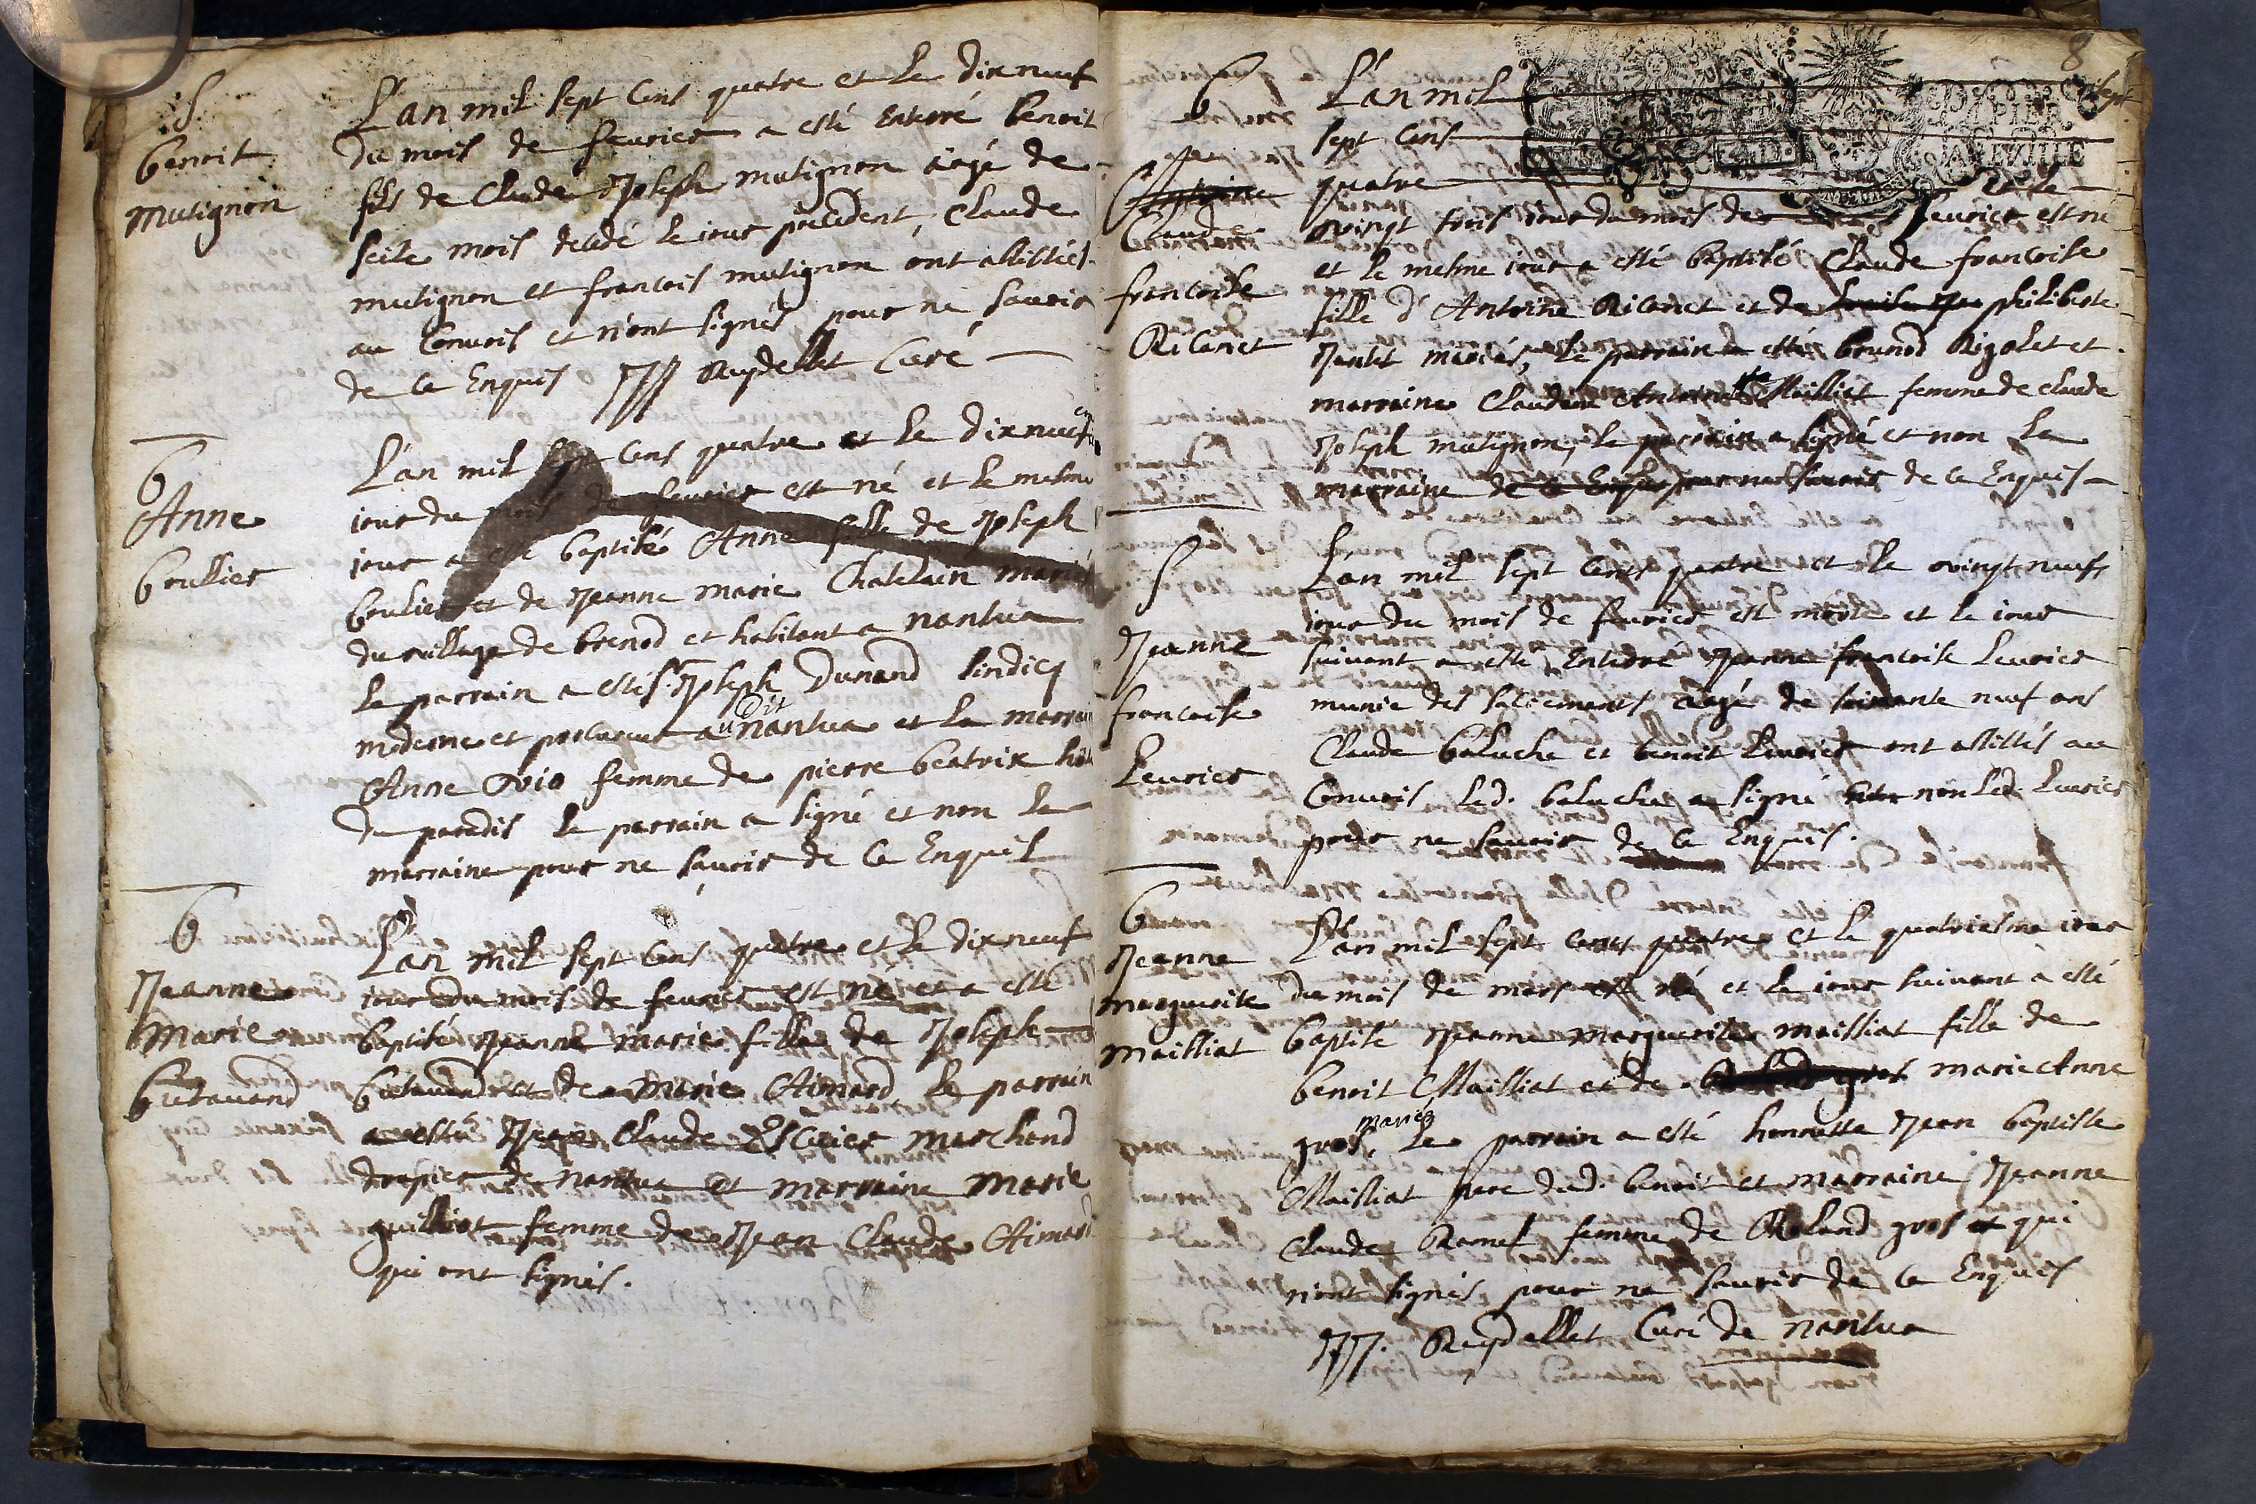 S
benoit
mutignon
L'an mil sept cens quatre et le dixneuf
du mois de feurier a esté enterré benoit
fils de Claude Joseph mutignon aagé de
seise mois decedé le iour precedent, Claude
mutignon et francois mutignon ont assistés
au conuois et n'ont signés pour ne sauoir
de ce enquis JJJ Reydellet Curé
b
Anne
boullier
L'an mil sept cens quatre et le dixneuf
iour du mois de feurier est né et le mesme
iour a esté baptisé Anne fille de Joseph
boulier et de Jeanne marie Chatelain mariés
du village de brenod et habitant a nantua
le parrain a esté sr. Joseph Dunand sindicq
moderne et procureur audit nantua et la marraine
Anne Vio femme de pierre beatrix
du paradis le parrain a signé et non la
marraine pour ne sauoir de ce enquis
b
Jeanne
marie
butavand
L'an mil sept cens quatre et le dixneuf
iour du mois de feurier est né et a esté
baptisé Jeanne marie fille de Joseph
butavand et de marie Aimard le parrain
a esté Jean Claude Escuier marchand
drapier de nantua et marraine marie
guilliot femme de Jean Claude Aimard
qui ont signés.
8
sept
b
Antoine
Claude
francoise
Ricaret
L'an mil
sept cens
quatre et le
vingt trois iour du mois de feurier est né
et le mesme iour a esté baptisé Claude francoise
fille d'Antoine Ricaret et de philiberte
Jantet mariés, le parrain a esté brunod Rigolet et
marraine Claudine Antoinette Mailliat femme de claude
Joseph mutignon, le parrain a signé et non la
marraine de ce enquis pour ne sauoir de ce enquis
S
Jeanne
francoise
Leurier
L'an mil sept cens quatre et le vingt neuf
iour du mois de feurier est morte et le iour
suivant a esté enterré Jeanne francoise Leurier
munie des sacrements aagé de soixante neuf ans
Claude baluche et benoit Leurier ont assistés au
conuois led. baluche a signé non led. Leurier
pour ne sauoir de ce enquis.
b
Jeanne
marguerite
mailliat
L'an mil sept cens quatre et le quatriesme iour
du mois de mars est né et le iour suivant a esté
baptise Jeanne marguerite mailliat fille de
benoit Mailliat et de marie Anne
gros mariés. le parrain a esté honneste Jean baptiste
Mailliat pere dud. benoit et marraine Jeanne
Claude Ramel femme de Roland gros et qui
n'ont signés pour ne sauoir de ce enquis
JJJ. Reydellet Curé de nantua